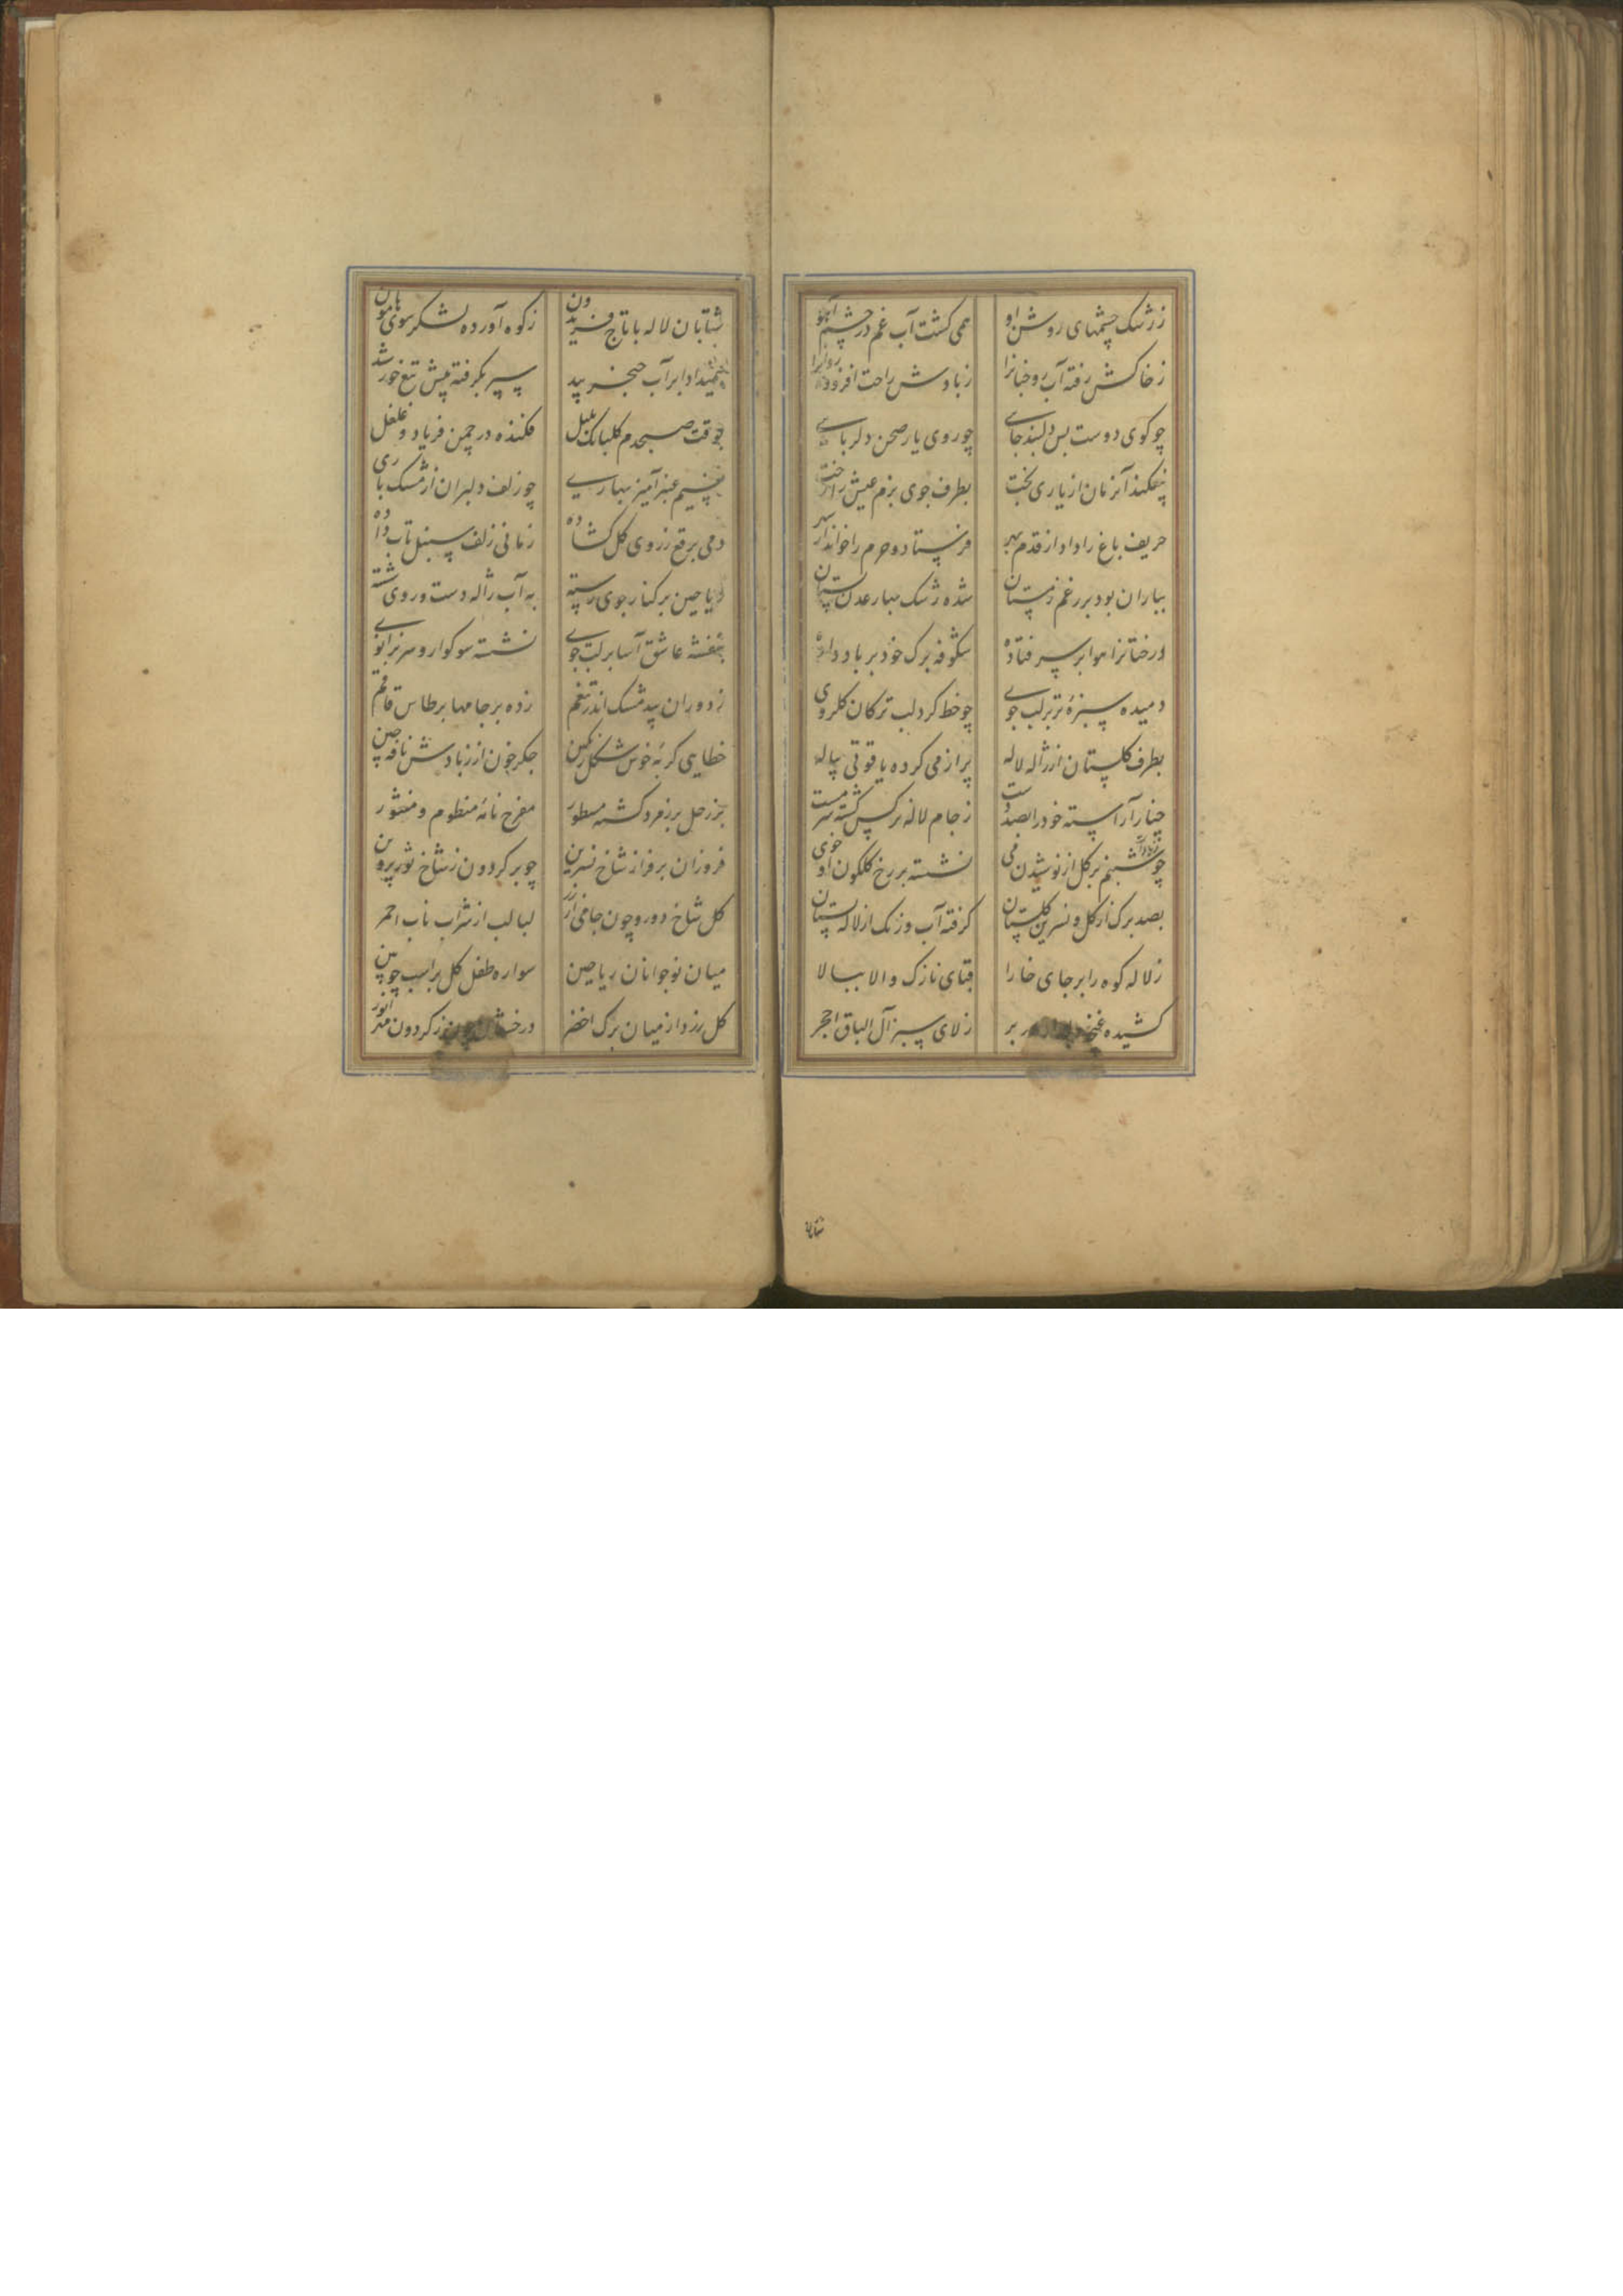 ز رشک چشمهای روشن او همی کشت آب غم در چشم آهو
ز خاکش رفته آب رو جنانرا ز بادش راحت افزوده روانرا
چو کوی دوست بس دلبند جای چو روی یار صحن دلربای
بیفکند آنزمان از یاری بخت بطرف جوی بزم عیش را رخت
حریف باغ را داد از قدم بهر فرستاد و حرم را خواند از شهر
بباران بود بر رغم زمستان شده رشک بهار عدن بستان
درختانرا هوا بر سر فتاده شکوفه برک خود بر باد داده
دمیده سبزهٔ تر بر لب جوی چو خط کرد لب ترکان کلروی
بطرف کلستان از ژاله لاله پر از می کرده یاقوتی پیاله
چنار آراسته خود را بصد دست ز جام لاله نرکس کشته سرمست
چو شبنم بر کل از نوشیدن می نشسته بر رخ کلکون او خوی
بصد برک از کل و نسرین کلستان کرفته آب و رنک از لاله بستان
ز لاله کوه را بر جای خارا قبای نازک والا ببالا
کشیده غنچه در بر ز لای سبز آل الباق احجر
شتابان
شتابان لاله با تاج فریدون ز کوه آورده لشکر سوی هامون
همیداد ابر آب خنجر بید سپر بکرفته پیش تیغ خورشید
بوقت صبحدم کلبانک بلبل فکنده در چمن فریاد و غلغل
نسیم عنبرآمیز بهاری چو زلف دلبران از مشک باری
دمی برقع ز روی کل کشاده زمانی زلف سنبل تاب داده
ریاحین بر کنار جوی رسته به آب ژاله دست و روی شسته
بنفشه عاشق آسا بر لب جوی نشسته سوکوار و سر بزانوی
ز دوران بید مشک اندر تنعم زده بر جامها برطاس قاقم
خطایی کربهٔ خوش شکل رنکین جکر خون از زبادش نافهٔ چین
بزر حل بر زمرد کشته مسطور مفرح نامهٔ منظوم و منثور
فروزان بر فراز شاخ نسرین چو بر کردون ز شاخ ثور پروین
کل شاخ دورو چون جامی از زر لبالب از شراب ناب احمر
میان نوجوانان ریاحین سواره طفل کل بر اسب چوبین
کل زرد از میان برک اخضر درخشان چون ز کردون مهر انور